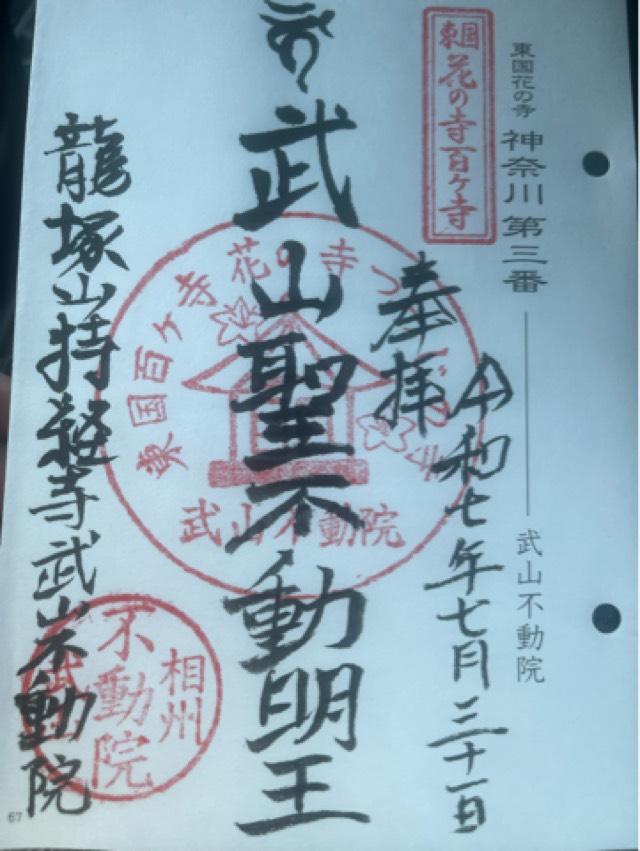 東国花の寺 神奈川第三番 武山不動院
東国花の寺百ヶ寺
奉拝
令和七年七月三十一日
武山聖不動明王
東国百ヶ寺花の寺
武山不動院
龍塚山持経寺武山不動院
相州
不動院
67